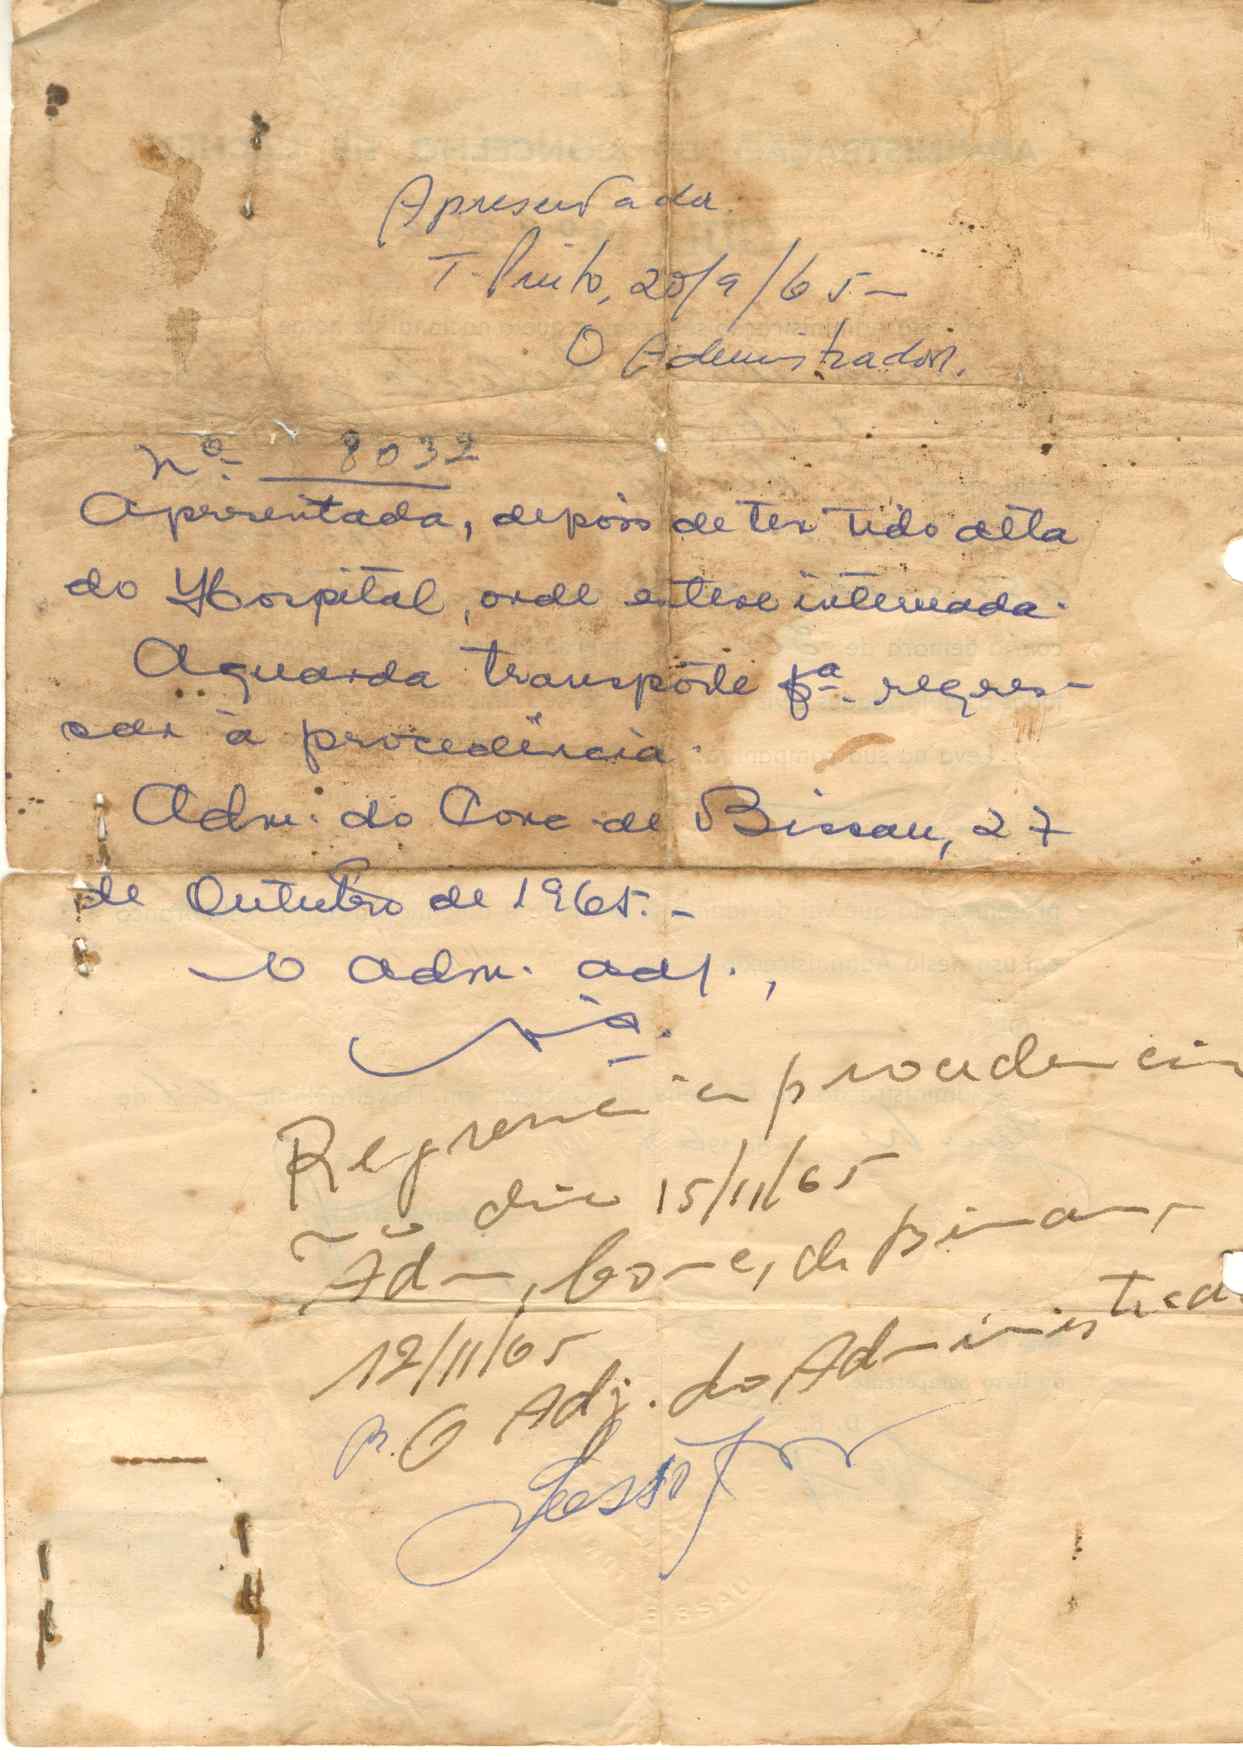 Apresentada.
T. Pinto, 20/9/65.-
O Administrador,
nº- 8032
Apresentada, depois de ter tido alta
do Hospital, onde esteve internada.
Aguarda transporte pª. regres-
sar à procedência.
Adm. do Conc de Bissau, 27
de Outubro de 1965.-
O adm. adj.,
Regressa à procedencia
no dia 15/11/65
Adm, Conc, de Bissau,
12/11/65
P. O Adj. do Administrad
BISSAU